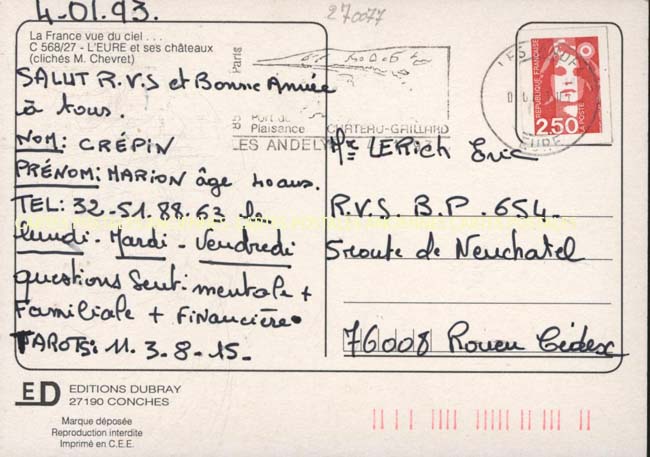 4-01.93.
270077
La France vue du ciel . . .
C 568/27 - L'EURE et ses châteaux
(clichés M. Chevret)
SALUT R.V.S et Bonne Année
à tous.
NOM: CRÉPIN
PRÉNOM: MARION âge 40 aus.
TEL: 32-51.88.63 le
lundi - Mardi - Vendredi
questions Senti mentale +
Familiale + Financière
TAROTS: 11. 3. 8. 15.
Paris
Port de
Plaisance
CHATEAU-GAILLARD
LES ANDELYS
EURE
REPUBLIQUE FRANÇAISE
2,50
LA POSTE
Mr LERich Eric
R.V.S. B.P. 654
5 route de Neuchatel
76008 Rouen Cédex
ED
EDITIONS DUBRAY
27190 CONCHES
Marque déposée
Reproduction interdite
Imprimé en C.E.E.